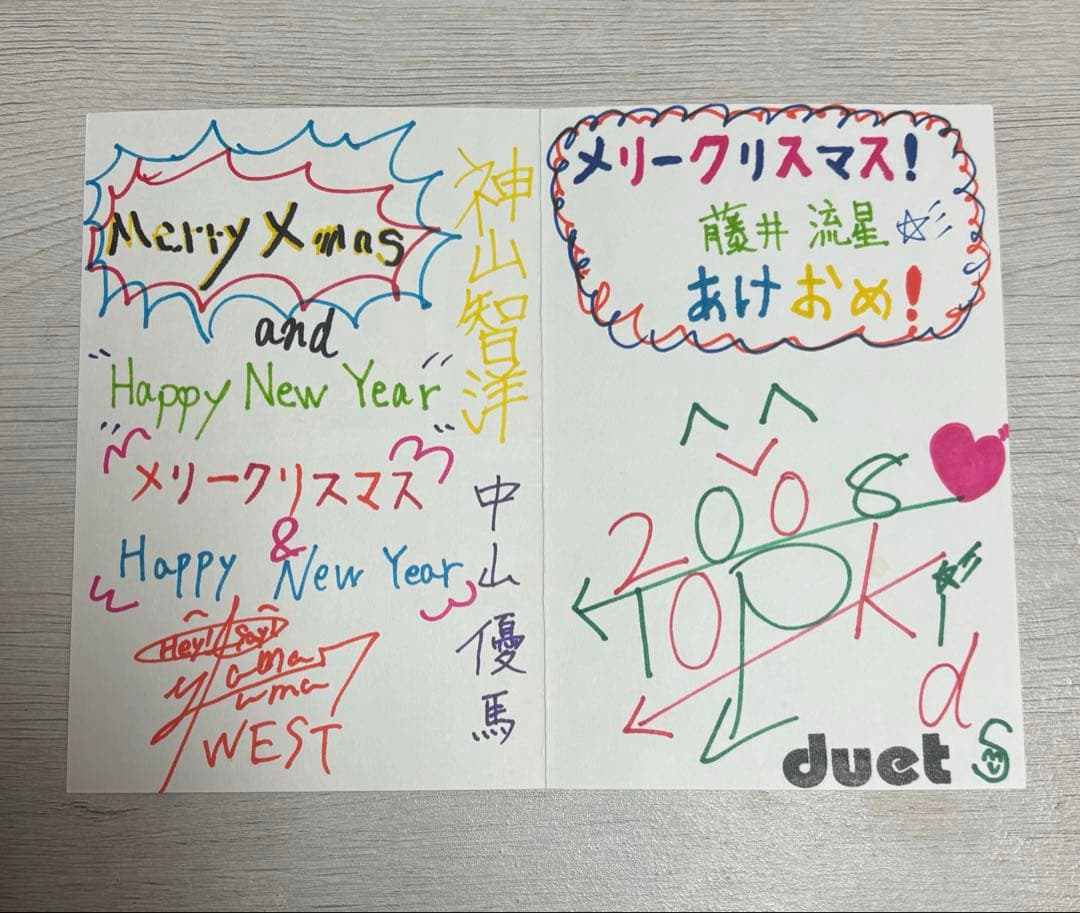 Merry Xmas
and
Happy New Year
神山智洋
メリークリスマス
&
Happy New Year
中山優馬
Hey! Say!
WEST
メリークリスマス!
藤井 流星
あけおめ!
2008
Top Kids
duet